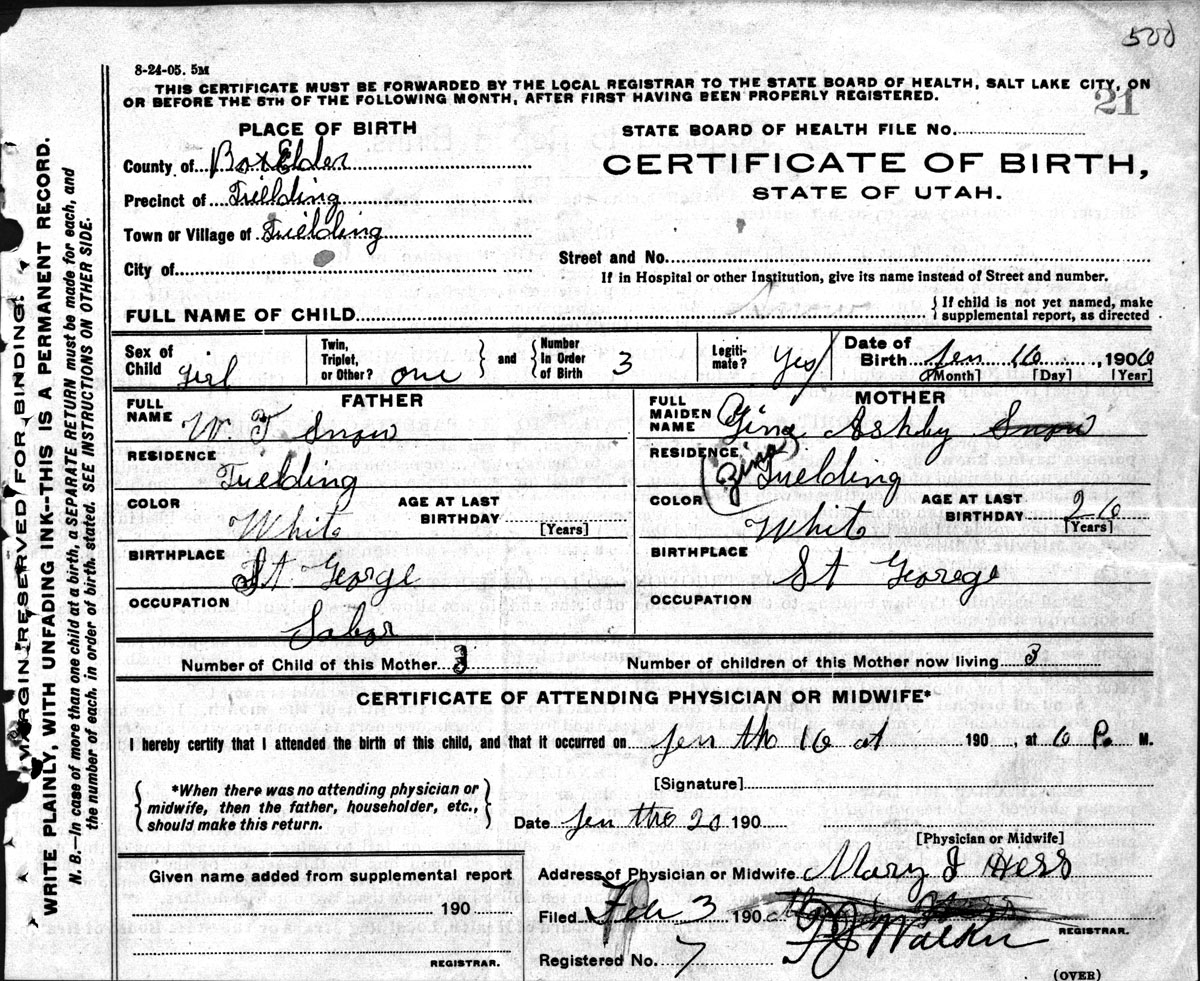 500
8-24-05. 5M
THIS CERTIFICATE MUST BE FORWARDED BY THE LOCAL REGISTRAR TO THE STATE BOARD OF HEALTH, SALT LAKE CITY, ON
OR BEFORE THE 5TH OF THE FOLLOWING MONTH, AFTER FIRST HAVING BEEN PROPERLY REGISTERED.
21
PLACE OF BIRTH
STATE BOARD OF HEALTH FILE No.
County of Box Elder
CERTIFICATE OF BIRTH,
Precinct of Fielding
STATE OF UTAH.
Town or Village of Fielding
Street and No.
City of
If in Hospital or other Institution, give its name instead of Street and number.
FULL NAME OF CHILD
{ If child is not yet named, make
supplemental report, as directed
Sex of Child girl
Twin, Triplet, or Other? one } and { Number in Order of Birth 3
Legitimate? yes
Date of Birth Jen 16, 1906
[Month] [Day] [Year]
FATHER
MOTHER
FULL NAME W. T. Snow
FULL MAIDEN NAME Zina Ashby Snow
Zina
RESIDENCE Fielding
RESIDENCE Fielding
COLOR White
AGE AT LAST BIRTHDAY
[Years]
COLOR White
AGE AT LAST BIRTHDAY 26
[Years]
BIRTHPLACE St George
BIRTHPLACE St Georege
OCCUPATION Labor
OCCUPATION
Number of Child of this Mother 3
Number of children of this Mother now living 3
CERTIFICATE OF ATTENDING PHYSICIAN OR MIDWIFE*
I hereby certify that I attended the birth of this child, and that it occurred on Jen the 16 at 190 , at 6 P. M.
*When there was no attending physician or
midwife, then the father, householder, etc.,
should make this return.
[Signature]
Date Jen the 20 190
[Physician or Midwife]
Given name added from supplemental report
190
REGISTRAR.
Address of Physician or Midwife Mary J Hess
Filed Feb 3 190
Walker
REGISTRAR.
Registered No. 7
(OVER)
MARGIN RESERVED FOR BINDING.
WRITE PLAINLY, WITH UNFADING INK--THIS IS A PERMANENT RECORD.
N. B.—In case of more than one child at a birth, a SEPARATE RETURN must be made for each, and
the number of each, in order of birth, stated. SEE INSTRUCTIONS ON OTHER SIDE.